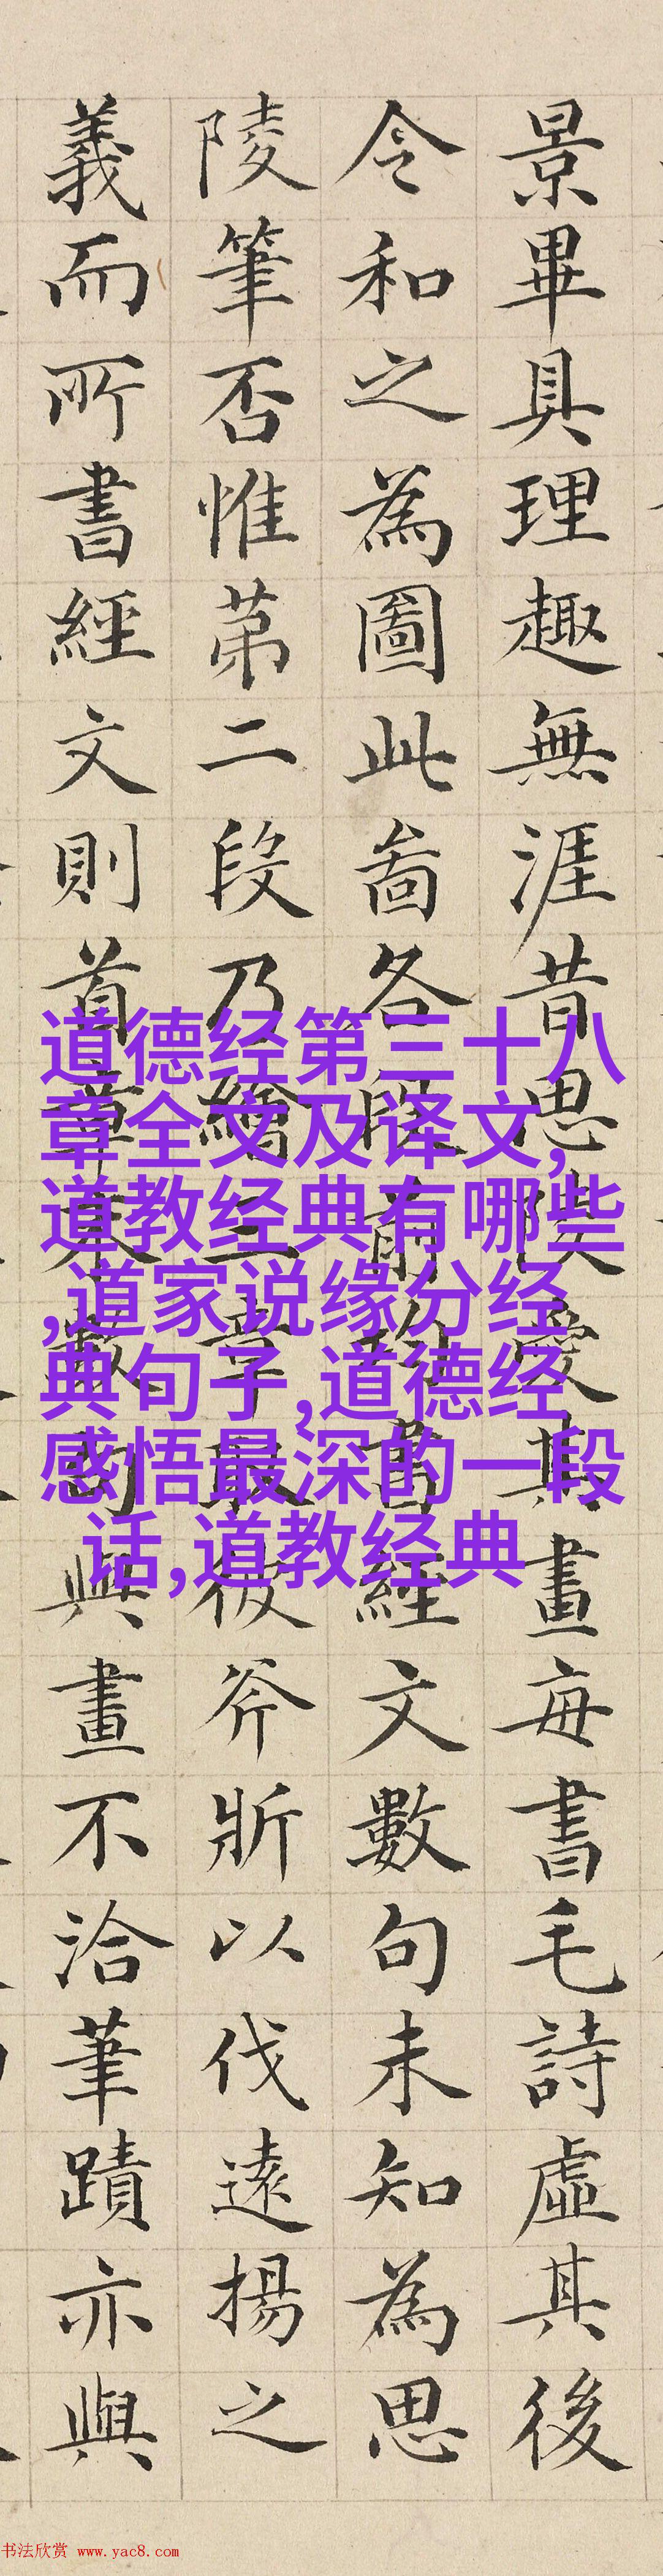 景畢具理趣無涯昔思陵愛其畫每書毛詩虛其後
令和之為圖此啚各段前所書經文數句未知為思
陵筆否惟苐二段乃繪三章取彼斧斨以伐遠揚之
義而所書經文則首章末數句與畫不洽筆蹟亦與
道德经第三十八
章全文及译文,
道教经典有哪些
,道家说缘分经
典句子,道德经
感悟最深的一段
话,道教经典
书法欣赏 www.yac8.com